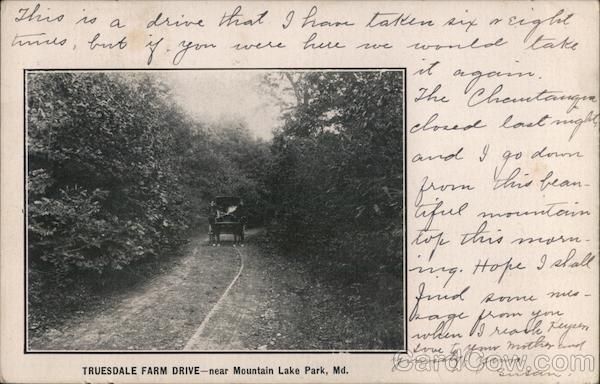 This is a drive that I have taken six or eight
times, but if you were here we would take
it again.
The Chautauqua
closed last night,
and I go down
from this beau-
tiful mountain
top this morn-
ing. Hope I shall
find some mes-
sage from you
when I reach Keyser
Love to your Mother and
TRUESDALE FARM DRIVE—near Mountain Lake Park, Md.
CardCow.com